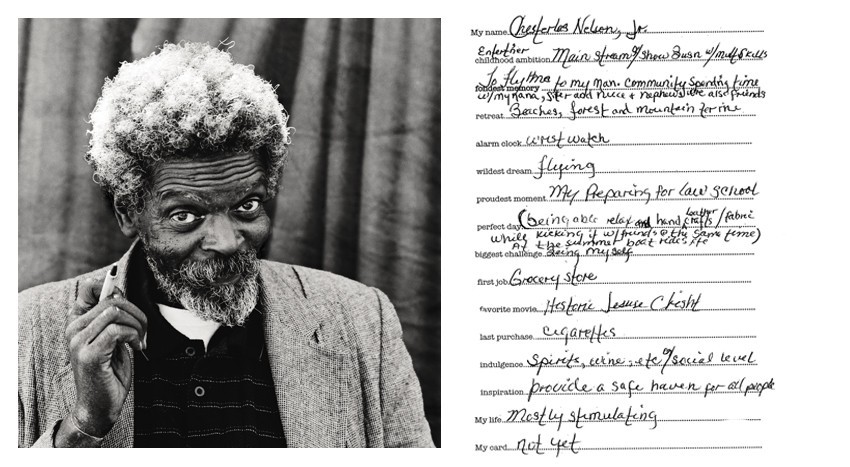 My name Chesterles Nelson, Jr.
Enferther
childhood ambition Main stream show Busn w/ mult skills
fondest memory to my man. community Spending time
w/ my nana, sister and niece + nephews were also friends
retreat Beaches, forest and mountain
alarm clock wrist watch
wildest dream flying
proudest moment My Preparing for law school
leather
perfect day (being able relax and hand crafts / fabric
while kicking it w/ friends @ the same time)
At the summer boat rides etc
biggest challenge Being myself
first job Grocery store
favorite movie Historic Jesuse Christ
last purchase cigarettes
indulgence Spirits, wine, etc social level
inspiration provide a safe haven for all people
My life Mostly stimulating
My card not yet